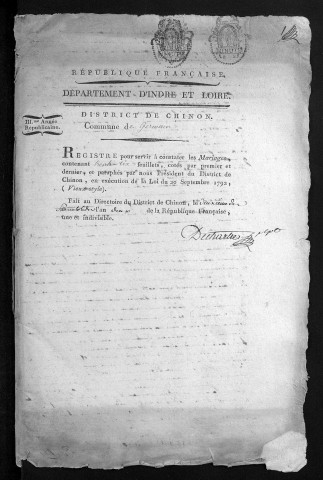 RÉPUBLIQUE FRANÇAISE.
DÉPARTEMENT D'INDRE ET LOIRE.
DISTRICT DE CHINON.
III.me Année
Républicaine.
Commune de
REGISTRE pour servir à constater les Mariages,
contenant feuillets, cotés par premier et
dernier, et paraphés par nous Président du District de
Chinon, en exécution de la Loi du 29 Septembre 1792;
(Vieux style).
Fait au Directoire du District de Chinon, le
l'an de la République Française,
une et indivisible.